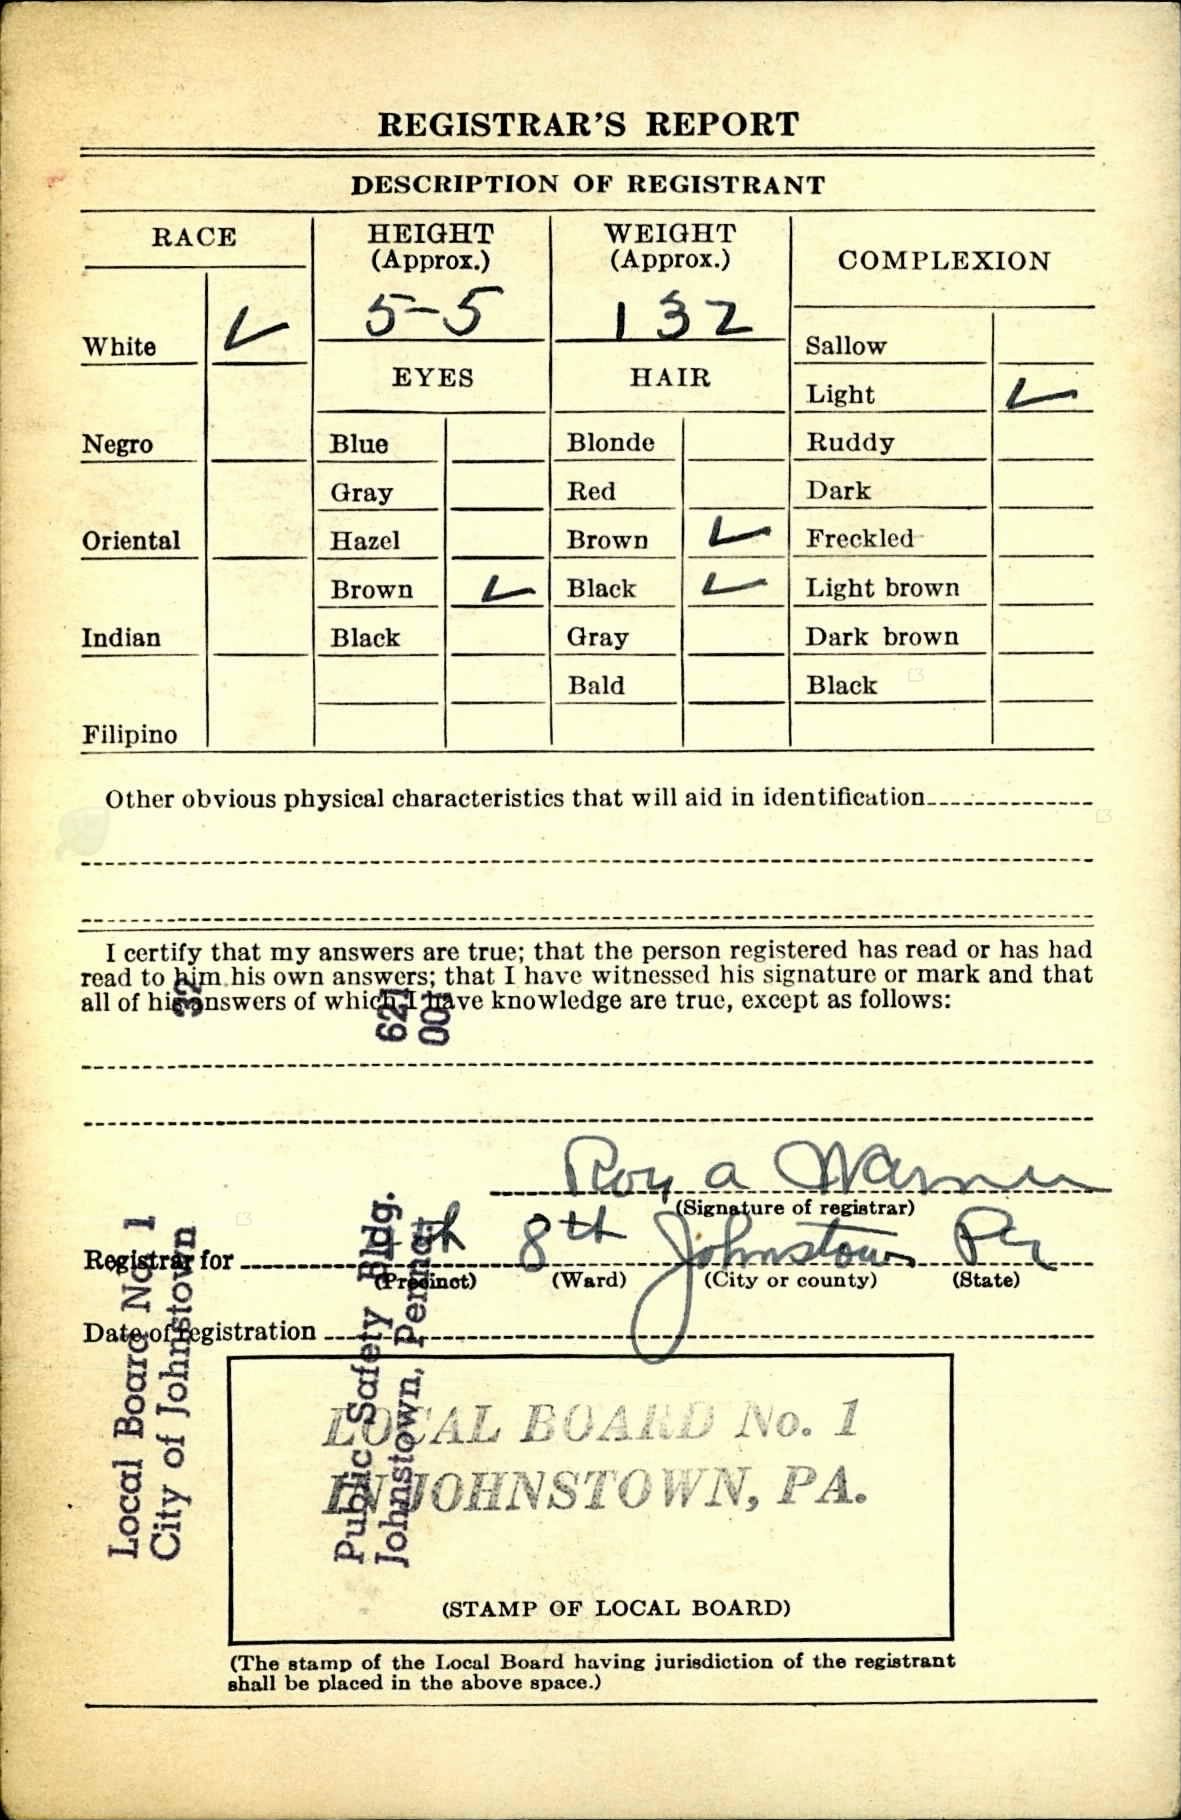 REGISTRAR'S REPORT
DESCRIPTION OF REGISTRANT
RACE
HEIGHT
(Approx.)
WEIGHT
(Approx.)
COMPLEXION
5-5
132
White
Sallow
EYES
HAIR
Light
Negro
Blue
Blonde
Ruddy
Gray
Red
Dark
Oriental
Hazel
Brown
Freckled
Brown
Black
Light brown
Indian
Black
Gray
Dark brown
Bald
Black
Filipino
Other obvious physical characteristics that will aid in identification
I certify that my answers are true; that the person registered has read or has had
read to him his own answers; that I have witnessed his signature or mark and that
all of his answers of which I have knowledge are true, except as follows:
32
621
001
Roy a Warner
(Signature of registrar)
Registrar for 8th Johnstown Pa
(Precinct) (Ward) (City or county) (State)
Date of registration
Local Board No. 1
City of Johnstown
Public Safety Bldg.
Johnstown, Penna.
LOCAL BOARD No. 1
IN JOHNSTOWN, PA.
(STAMP OF LOCAL BOARD)
(The stamp of the Local Board having jurisdiction of the registrant
shall be placed in the above space.)